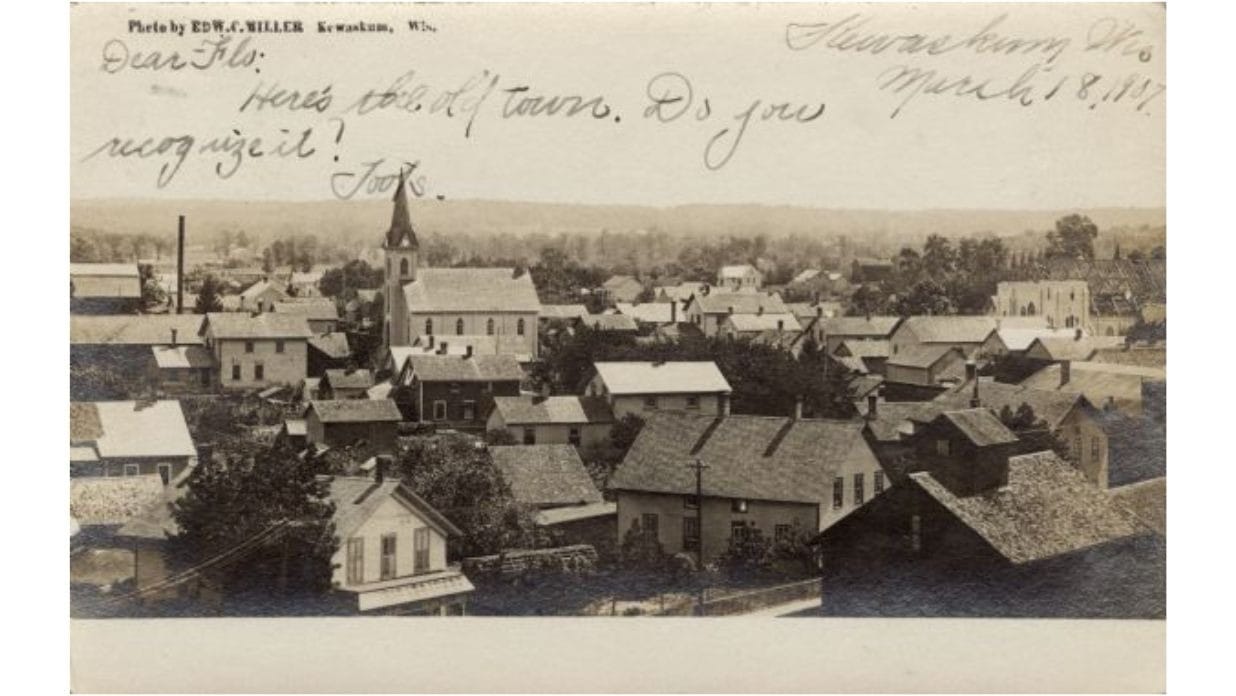 Photo by EDW.C.MILLER Kewaskum, Wis.
Kewaskum, Wis
March 18, 1907
Dear Flo:
Here's the old town. Do you
recognize it!
Toots.